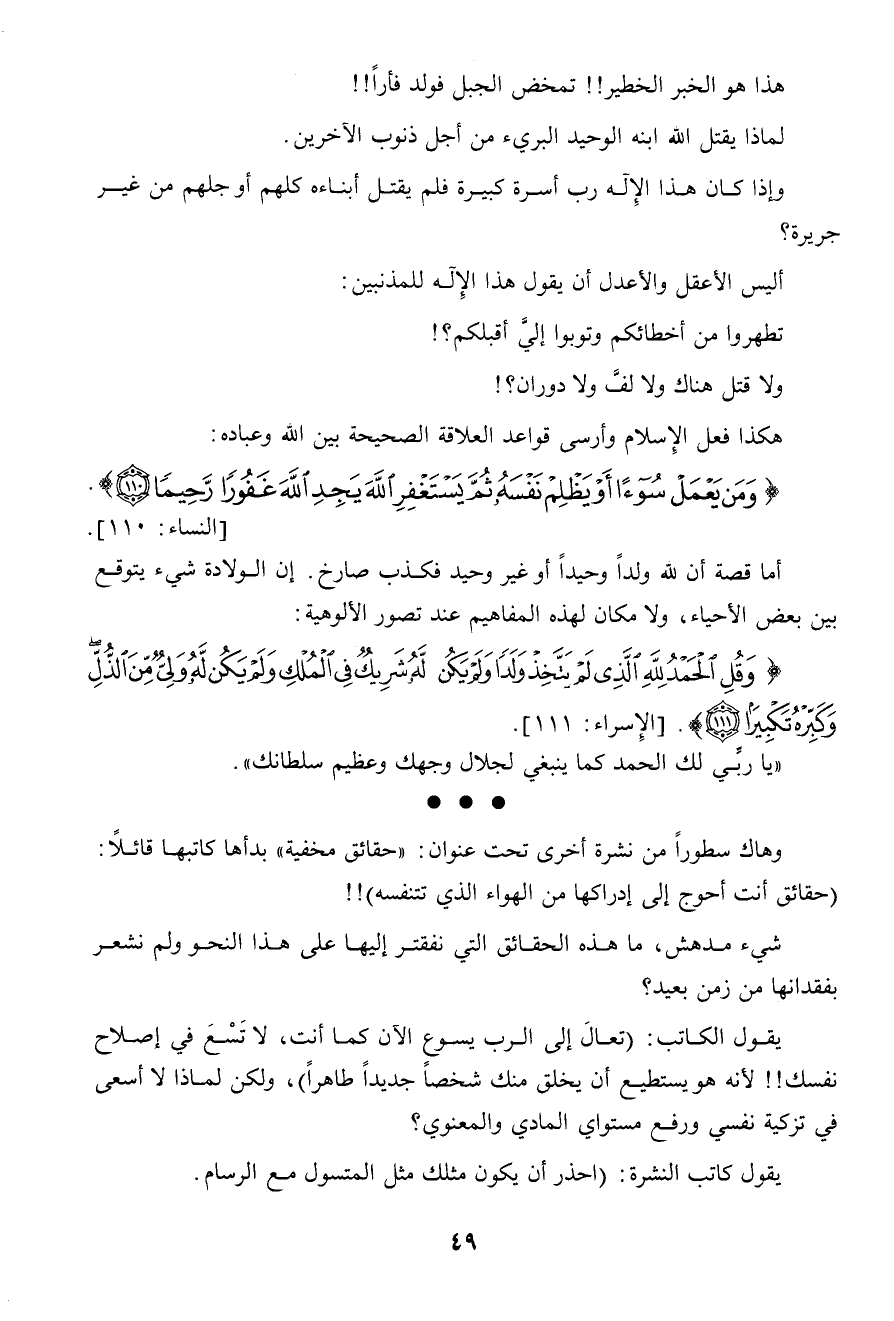 هذا هو الخبر الخطير!! تمخض الجبل فولد فأراً!!
لماذا يقتل الله ابنه الوحيد البريء من أجل ذنوب الآخرين.
وإذا كان هذا الإلٓه رب أسرة كبيرة فلم يقتل أبناءه كلهم أو جلهم من غير
جريرة؟
أليس الأعقل والأعدل أن يقول هذا الإلٓه للمذنبين:
تطهروا من أخطائكم وتوبوا إليَّ أقبلكم؟!
ولا قتل هناك ولا لفَّ ولا دوران؟!
هكذا فعل الإسلام وأرسى قواعد العلاقة الصحيحة بين الله وعباده:
﴿ وَمَن يَعْمَلْ سُوٓءًا أَوْ يَظْلِمْ نَفْسَهُۥ ثُمَّ يَسْتَغْفِرِ ٱللَّهَ يَجِدِ ٱللَّهَ غَفُورًا رَّحِيمًا ١١٠ ﴾.
[النساء: ١١٠].
أما قصة أن لله ولداً وحيداً أو غير وحيد فكذب صارخ. إن الولادة شيء يتوقع
بين بعض الأحياء، ولا مكان لهذه المفاهيم عند تصور الألوهية:
﴿ وَقُلِ ٱلْحَمْدُ لِلَّهِ ٱلَّذِى لَمْ يَتَّخِذْ وَلَدًا وَلَمْ يَكُن لَّهُۥ شَرِيكٌ فِى ٱلْمُلْكِ وَلَمْ يَكُن لَّهُۥ وَلِىٌّ مِّنَ ٱلذُّلِّ ۖ
وَكَبِّرْهُ تَكْبِيرًا ١١١ ﴾. [الإسراء: ١١١].
«يا ربَّي لك الحمد كما ينبغي لجلال وجهك وعظيم سلطانك».
● ● ●
وهاك سطوراً من نشرة أخرى تحت عنوان: «حقائق مخفية» بدأها كاتبها قائلاً:
(حقائق أنت أحوج إلى إدراكها من الهواء الذي تتنفسه)!!
شيء مدهش، ما هذه الحقائق التي نفتقر إليها على هذا النحو ولم نشعر
بفقدانها من زمن بعيد؟
يقول الكاتب: (تعالَ إلى الرب يسوع الآن كما أنت، لا تَسْعَ في إصلاح
نفسك!! لأنه هو يستطيع أن يخلق منك شخصاً جديداً طاهراً)، ولكن لماذا لا أسعى
في تزكية نفسي ورفع مستواي المادي والمعنوي؟
يقول كاتب النشرة: (احذر أن يكون مثلك مثل المتسول مع الرسام.
٤٩